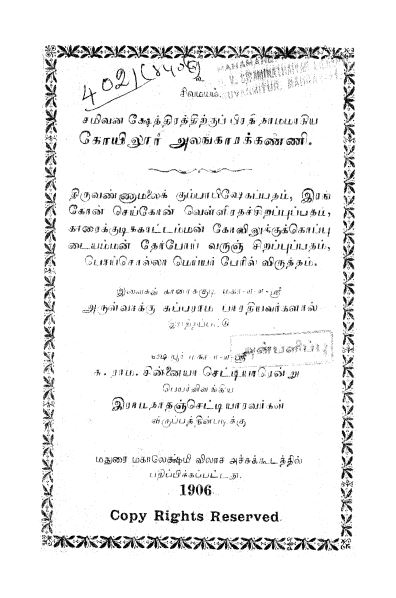 சிவமயம்.
சமீவன க்ஷேத்திரத்திற்குப் பிரதி நாமமாகிய
கோயிலூர் அலங்காரக்கண்ணி.
திருவண்ணாமலைக் கும்பாபிஷேகப்பதம், இரங்
கோன் செய்கோன் வெள்ளிரதச்சிறப்புப்பதம,
காரைக்குடிசுகாட்டம்மன் கோவிலுக்குக்கொப்பு
டையம்மன் தேர்போய் வருஞ் சிறப்புப்பதம்,
பொய்சொல்லா மெய்யர் பேரில் விருத்தம்.
காரைக்குடி மகா-ள-ள-ஸ்ரீ
அருள்வாக்கு சுப்பராம பாரதியவர்களால்
இயற்றப்பட்டு
மகா-ள-ள-ஸ்ரீ
சு. ராம. சின்னையா செட்டியாரென்று
பெயர்விளங்கிய
இராமநாதஞ்செட்டியாரவர்கள்
விருப்பத்தின்படிக்கு
மதுரை மகாலெக்ஷ்மி விலாச அச்சுக்கூடத்தில்
பதிப்பிக்கப்பட்டது.
1906
Copy Rights Reserved
அன்பளிப்பு